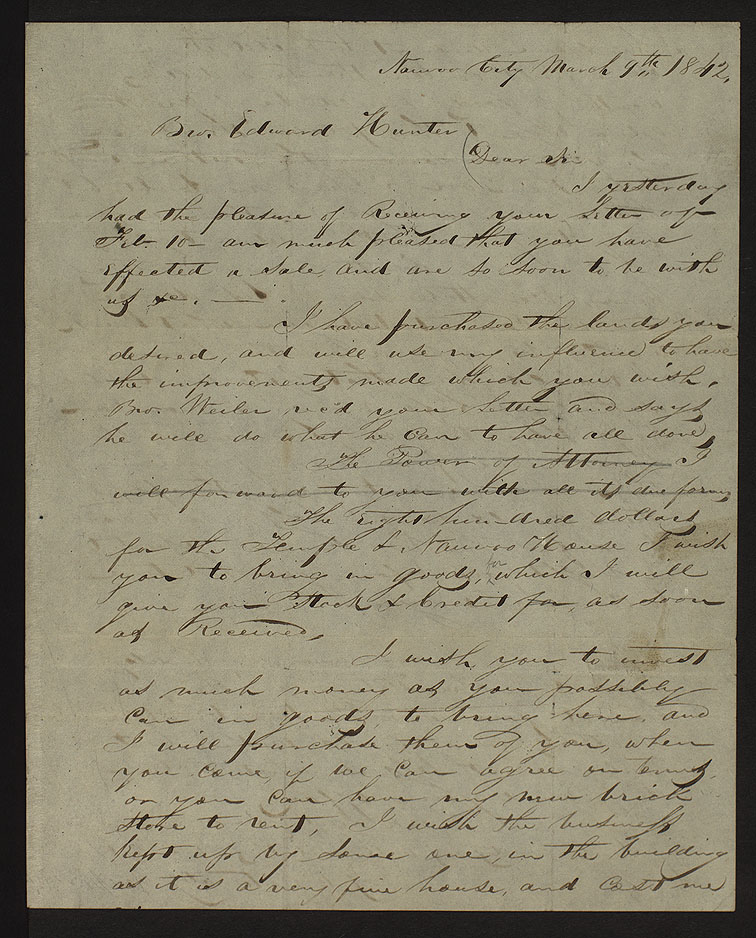 Nauvoo City March 9th 1842,
Bro. Edward Hunter
Dear Sir
I yesterday
had the pleasure of Receiving your Letter of
Feb. 10— am much pleased that you have
Effeated a sale and are so soon to be with
us &c. —
I have purchased the lands you
desired, and will use my influence to have
the improvements made which you wish,
Bro. Weiler rec'd your Letter and says
he will do what he Can to have all done,
The Power of Attorney I
will forward to you with all its due forms
The eight hundred dollars
for the Temple & Nauvoo House I wish
you to bring in goods, for which I will
give you Stock & Credit for, as soon
as Received,
I wish you to invest
as much money as you possibly
Can in goods, to bring here, and
I will purchase them of you, when
you come, if we Can agree on terms,
or you Can have my new brick
Store to rent, I wish the business
kept up by some one, in the building
as it is a very fine house, and Cost me